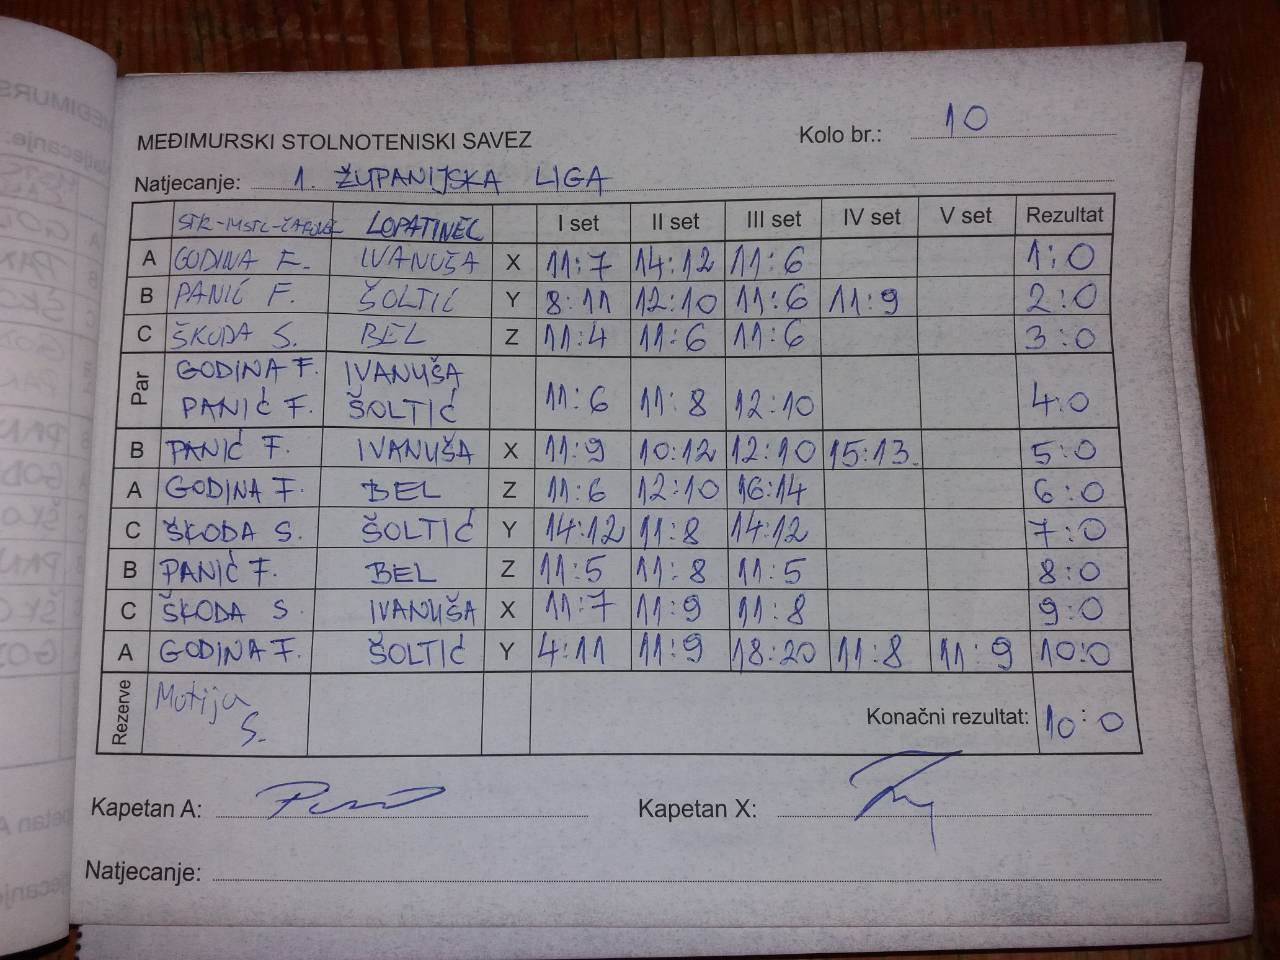 MEĐIMURSKI STOLNOTENISKI SAVEZ
Kolo br.: 10
Natjecanje: 1. ŽUPANIJSKA LIGA
LOPATINEC I set II set III set IV set V set Rezultat
A GODINA F. IVANUŠA X 11:7 14:12 11:6 1:0
B PANIĆ F. ŠOLTIĆ Y 8:11 12:10 11:6 11:9 2:0
C ŠKODA S. BEL Z 11:4 11:6 11:6 3:0
Par GODINA F. IVANUŠA
PANIĆ F. ŠOLTIĆ 11:6 11:8 12:10 4:0
B PANIĆ F. IVANUŠA X 11:9 10:12 12:10 15:13 5:0
A GODINA F. BEL Z 11:6 12:10 16:14 6:0
C ŠKODA S. ŠOLTIĆ Y 14:12 11:8 14:12 7:0
B PANIĆ F. BEL Z 11:5 11:8 11:5 8:0
C ŠKODA S. IVANUŠA X 11:7 11:9 11:8 9:0
A GODINA F. ŠOLTIĆ Y 4:11 11:9 18:20 11:8 11:9 10:0
Rezerve Matija
S.
Konačni rezultat: 10:0
Kapetan A: Kapetan X:
Natjecanje: